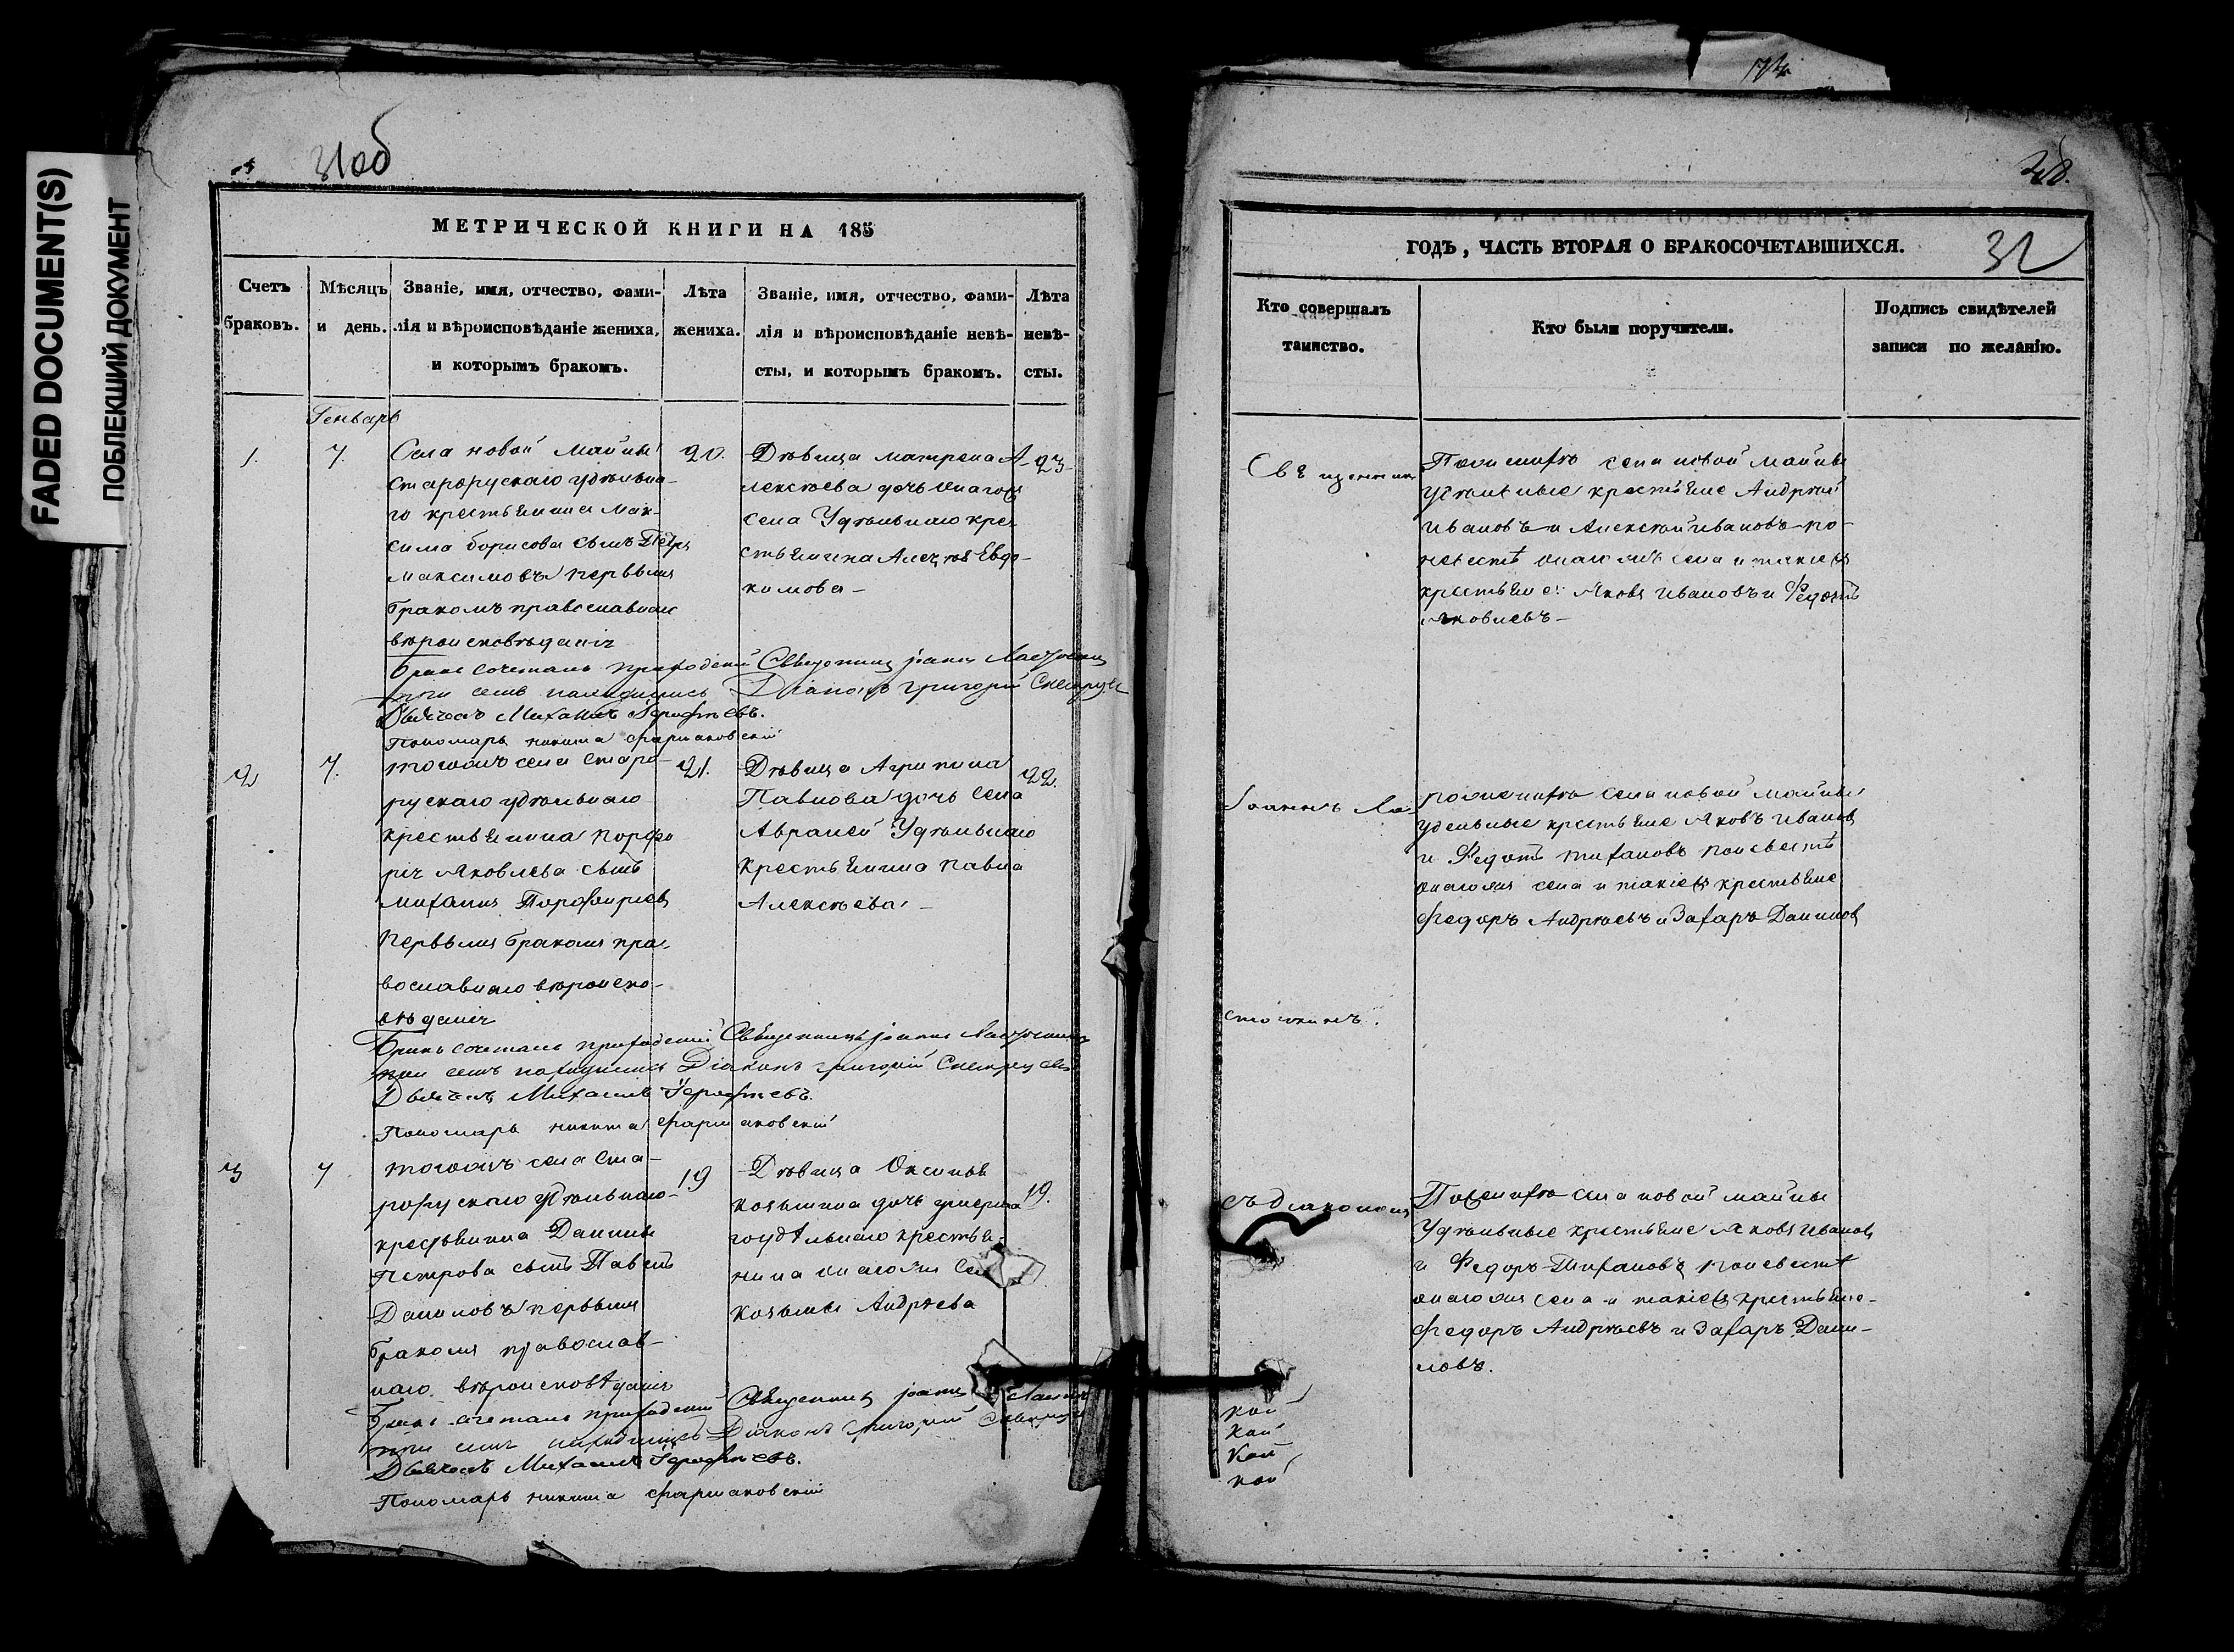 FADED DOCUMENT(S)
ПОБЛЕКШИЙ ДОКУМЕНТ
31об
МЕТРИЧЕСКОЙ КНИГИ НА 185
Счетъ браковъ.
Мѣсяцъ и день.
Званіе, имя, отчество, фами-
лія и вѣроисповѣданіе жениха,
и которымъ бракомъ.
Лѣта жениха.
Званіе, имя, отчество, фами-
лія и вѣроисповѣданіе невѣ-
сты, и которымъ бракомъ.
Лѣта
невѣ-
сты.
Генварь
1.
7.
Села новой Майны
старорускаго удѣльна-
го крестьянина Мак-
сима борисова сынъ Петръ
Максимовъ первымъ
бракомъ православнаго
вѣроисповѣданія
20.
Дѣвица матрена А-
лексѣева дочь онагожъ
села Удѣльнаго кре-
стьянина Алексѣя Евдо-
кимова
23
бракъ сочеталъ приходскій Священникъ Іоаннъ
при семъ находились Діаконъ григорій
Дьячекъ Михаилъ
Пономарь никита
2
7.
тогожъ села старо-
рускаго удѣльнаго
крестьянина порфи
рія Яковлева сынъ
михаилъ Порфирьевъ
первымъ бракомъ пра-
вославнаго вѣроиспо-
вѣданія
21.
Дѣвица Агрипина
Павлова дочь села
Авралей Удѣльнаго
крестьянина павла
Алексѣева
22.
бракъ сочеталъ приходскій Священникъ Іоаннъ
при семъ находились Діаконъ григорій
Дьячекъ Михаилъ
Пономарь никита
3
7
тогожъ села ста-
рорускаго удѣльнаго
крестьянина Данилы
Петрова сынъ Павелъ
Даниловъ первымъ
бракомъ православ-
наго вѣроисповѣданія
19
Дѣвица Оксинья
козьмина дочь
удѣльнаго крестья-
нина онагожъ села
козьмы Андрѣева
19.
бракъ сочеталъ приходскій Священникъ Іоаннъ
при семъ находились Діаконъ григорій
Дьячекъ Михаилъ
Пономарь никита
ГОДЪ, ЧАСТЬ ВТОРАЯ О БРАКОСОЧЕТАВШИХСЯ.
32
Кто совершалъ
таинство.
Кто были поручители.
Подпись свидѣтелей
записи по желанію.
Священникъ
По женихѣ села новой майны
удѣльные крестьяне Андрѣй
ивановъ и Алексѣй ивановъ по
невестѣ онагожъ села и такіежъ
крестьяне: Яковъ ивановъ и Федотъ
Яковлевъ
Іоаннъ Ла-
по женихѣ села новой майны
удельные крестьяне Яковъ иванов
и Федотъ тихановъ по невестѣ
онагожъ села и такіежъ крестьяне
Федоръ Андрѣевъ и Захаръ Данилов
съ діакономъ
По женихѣ села новой майны
Удѣльные крестьяне Яковъ иванов
и Федоръ Тихановъ по невестѣ
онагожъ села и такіежъ крестьяне
Федоръ Андрѣевъ и Захаръ Дани-
ловъ.
кой
кой
кой
кой